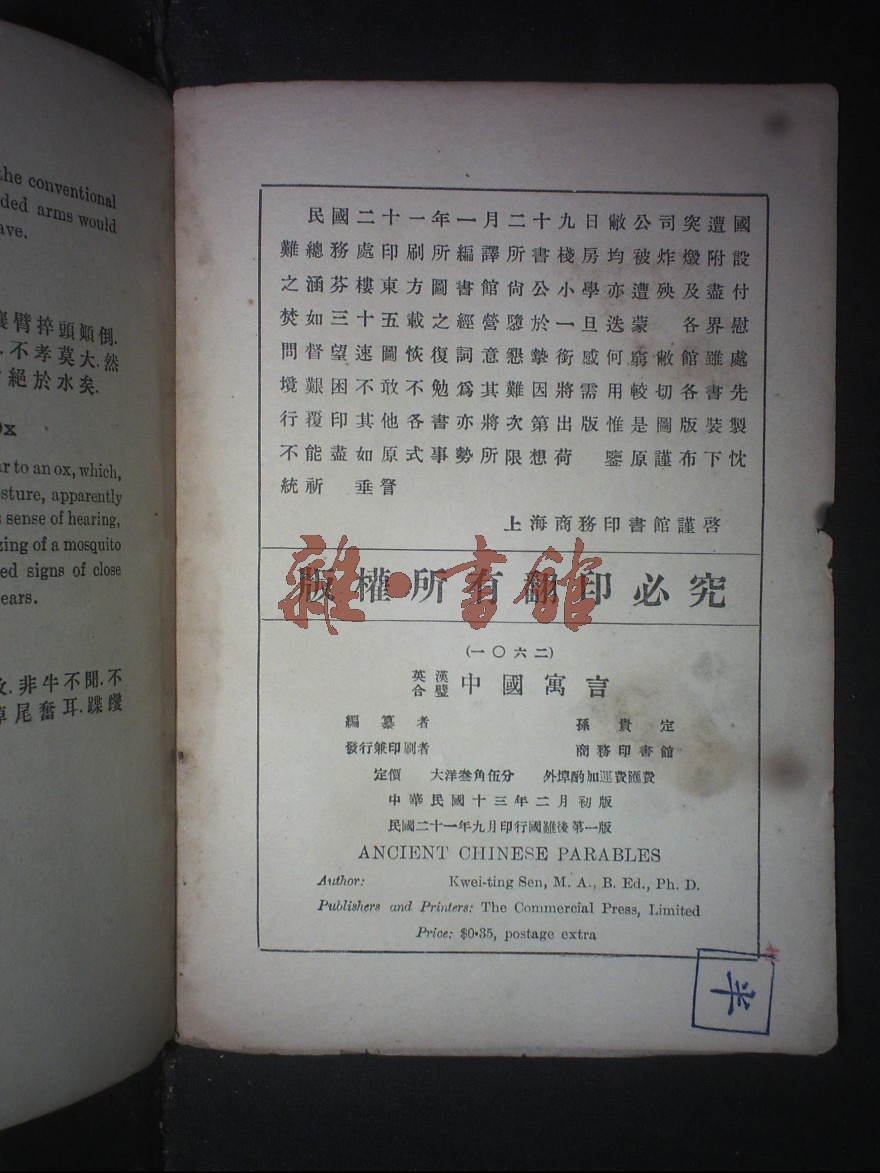 the conventional
ded arms would
ave.
臂捽頭顛倒.
不孝莫大.然
絕於水矣.
Ox
ar to an ox, which,
sture, apparently
s sense of hearing,
zing of a mosquito
ed signs of close
ears.
非牛不聞.不
掉尾奮耳.蹀躞
民國二十一年一月二十九日敝公司突遭國
難總務處印刷所編譯所書棧房均被炸燬附設
之涵芬樓東方圖書館尚公小學亦遭殃及盡付
焚如三十五載之經營隳於一旦迭蒙 各界慰
問督望速圖恢復詞意懇摯銜感何窮敝館雖處
境艱困不敢不勉爲其難因將需用較切各書先
行覆印其他各書亦將次第出版惟是圖版裝製
不能盡如原式事勢所限想荷 鑒原謹布下忱
統祈 垂詧
上海商務印書館謹啓
版權所有翻印必究
雜·書館
(一〇六二)
英漢合璧 中國寓言
編纂者 孫貴定
發行兼印刷者 商務印書館
定價 大洋叁角伍分 外埠酌加運費匯費
中華民國十三年二月初版
民國二十一年九月印行國難後第一版
ANCIENT CHINESE PARABLES
Author: Kwei-ting Sen, M. A., B. Ed., Ph. D.
Publishers and Printers: The Commercial Press, Limited
Price: $0.35, postage extra
半